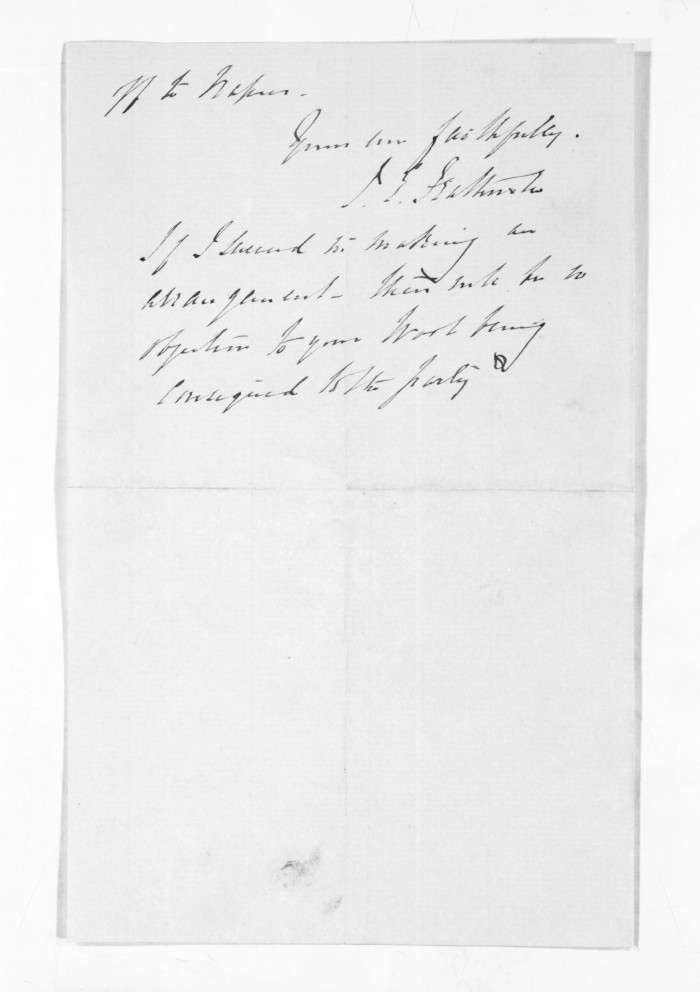 off to Napier.
Yours ever faithfully.
I. E. Featherston
If I succeed in making an
arrangement - there will be no
objection to your Wool being
consigned to the party